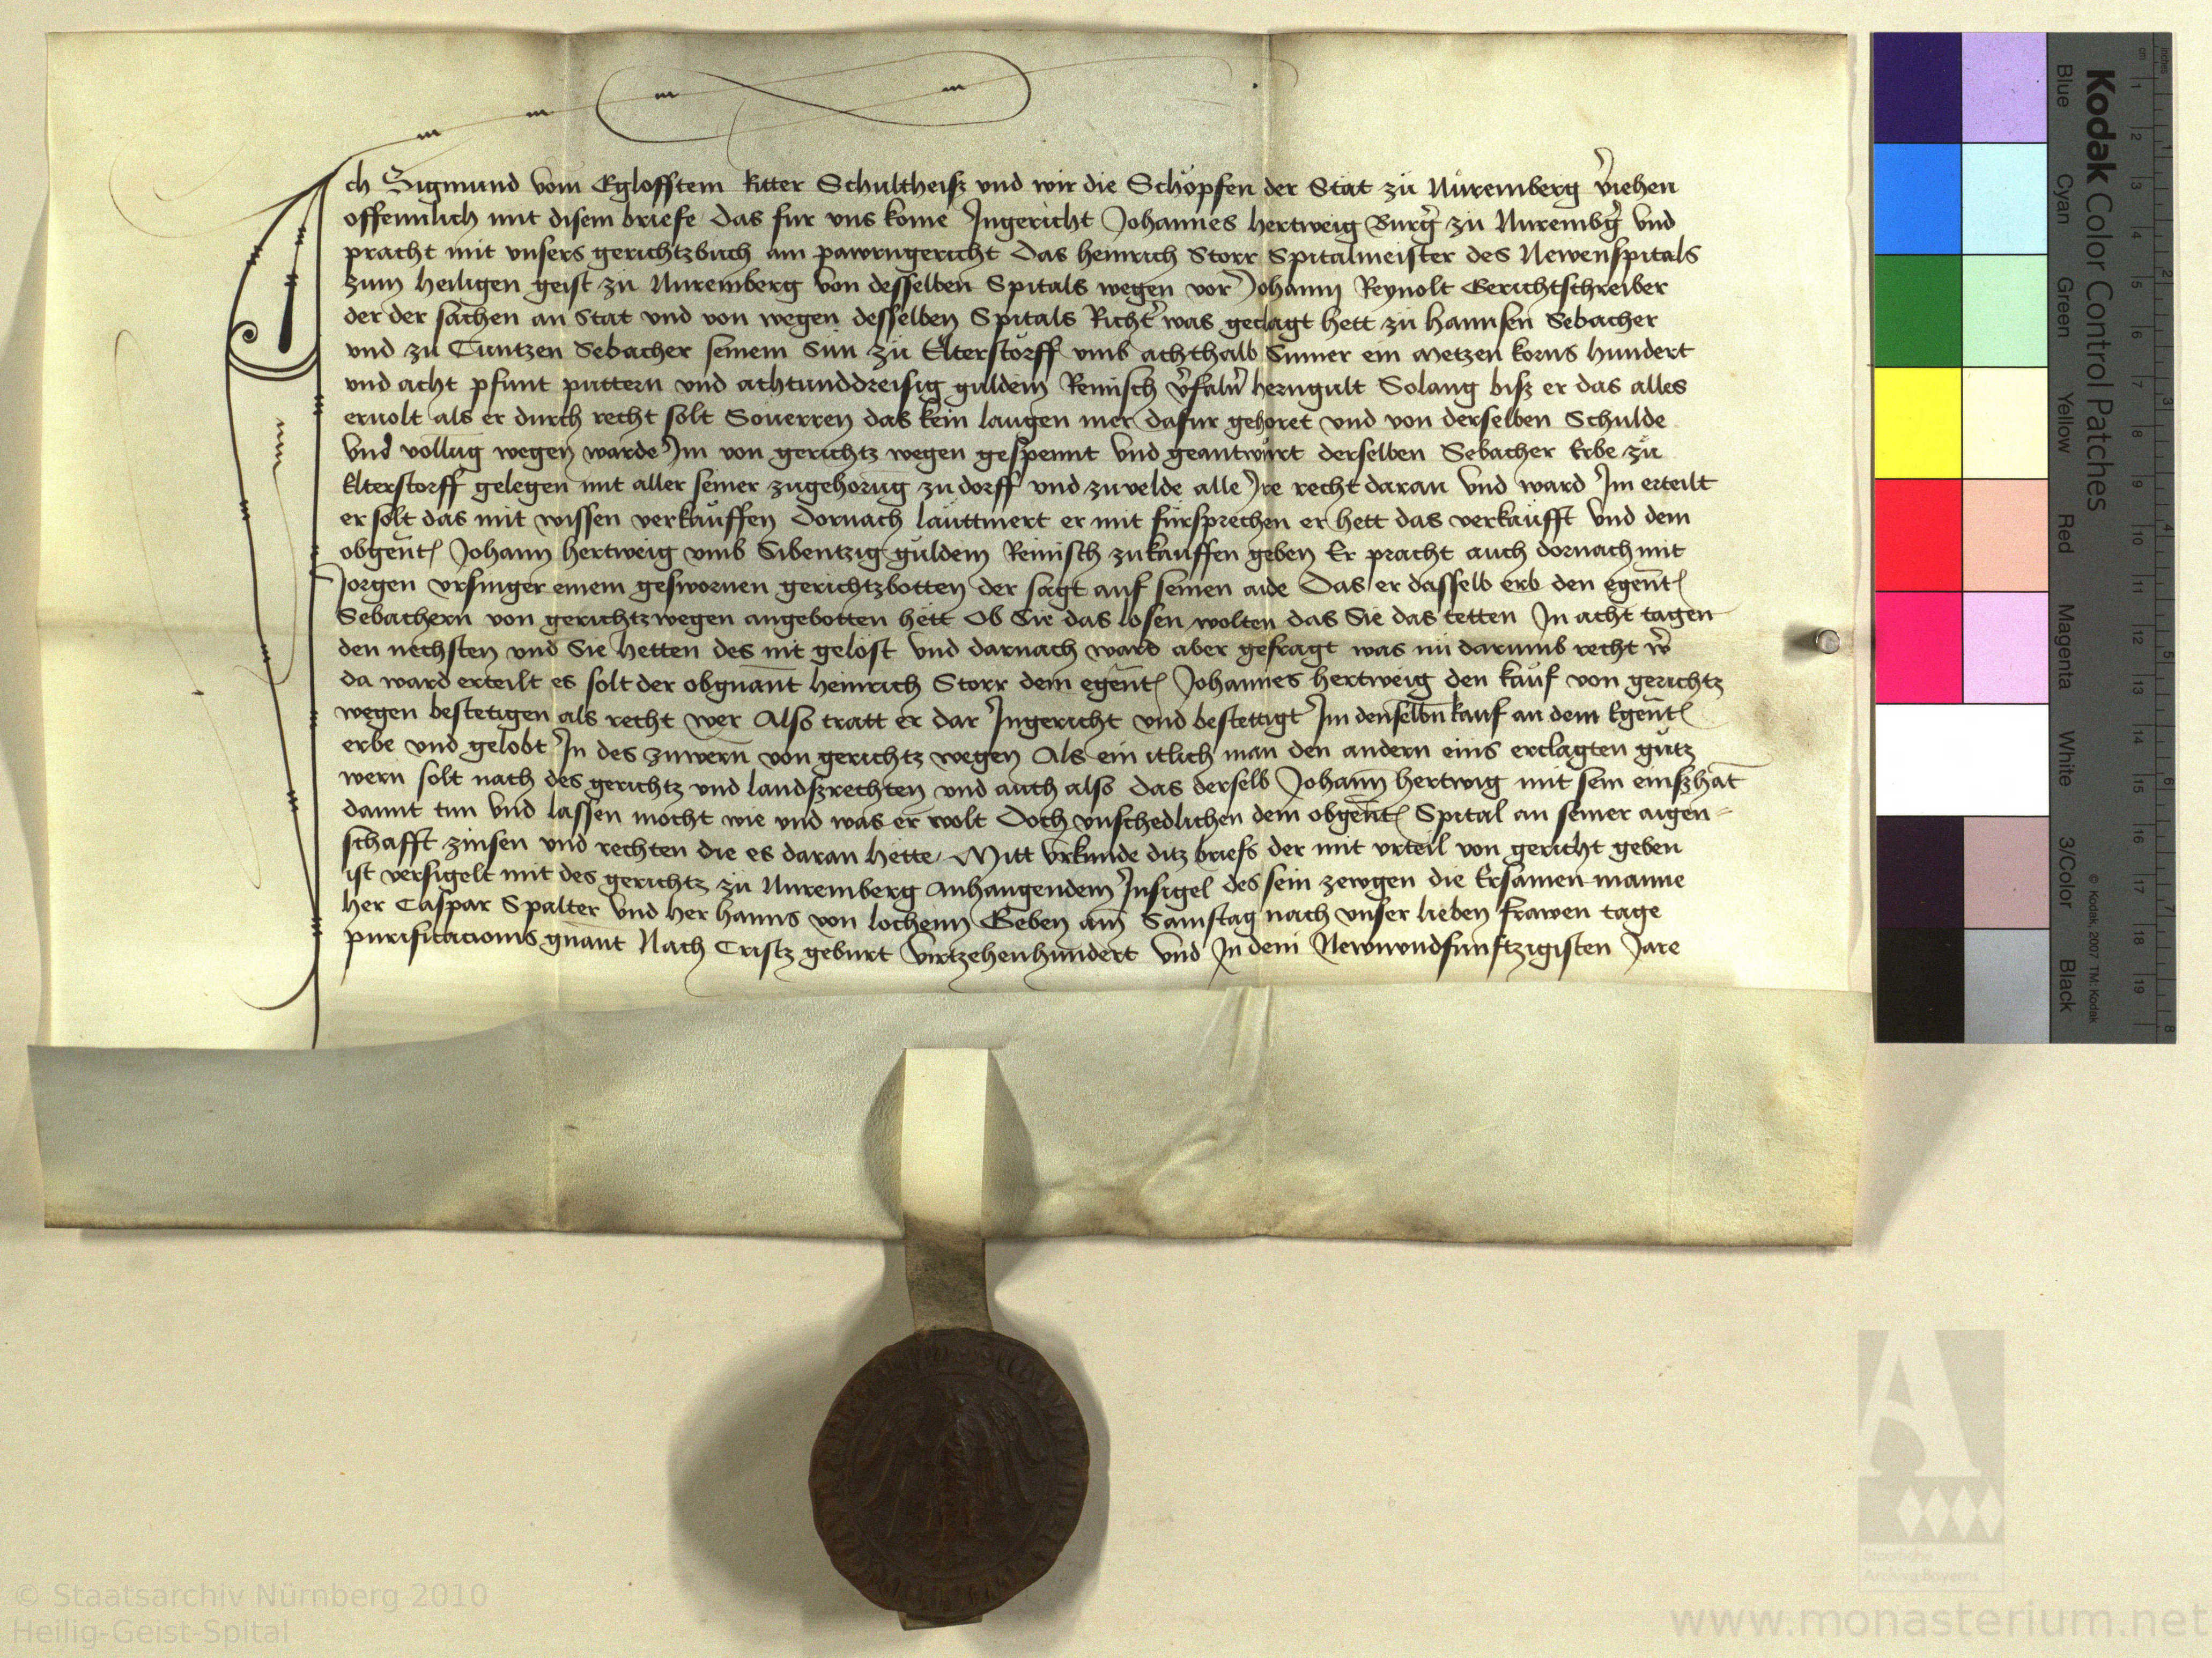 Ich Sigmund vom Egloffstein Ritter Schultheiß vnd wir die Schopfen der Stat zu Nuremberg v̄iehen
offennlich mit disem briefe das fur vns kome Ingericht Johannes hertweig Burḡ zu Nurembḡ vnd
pracht mit vnsers gerichtzbuch am pawrngericht das heinrich Storr Spitalmeister des Newenspitals
zum heiligen geist zu Nuremberg von desselben Spitals wegen vor Johann Reynolt Gerichtschreiber
der der sachen an Stat vnd von wegen desselben Spitals Richt̄ was geclagt hett zu hannsen Sebacher
vnd zu Cuntzen Sebacher seinem Sun zu Elterstorff vmb achthalb Sumer ein metzen korns hundert
vnd acht pfunt puttern vnd achtunddreisig guldein Reinisch v̄faln̄ herngult Solang biß er das alles
ervolt als er durch recht solt Souerren das kein laugen mer dafur gehoret vnd von derselben Schulde
vnd vollūg wegen warde Im von gerichtz wegen gespennt vnd geantwurt derselben Sebacher Erbe zu
Elterstorff gelegen mit aller seiner zugehorūg zu dorff vnd zu velde alle Ire recht daran vnd ward Im erteilt
er solt das mit wissen verkauffen Dornach lauttmert er mit fursprechen er hett das verkaufft vnd dem
obgēnt Johann hertweig vmb Sibentzig guldein Reinisch zukauffen geben Er pracht auch dornach mit
Jorgen vrsinger einem geswornen gerichtzbotten der sagt auf seinen aide Das er dasselb erb den egēnt
Sebachern von gerichtzwegen angebotten hett Ob Sie das losen wolten das Sie das tetten In acht tagen
den nechsten vnd Sie hetten des nit gelost vnd darnach ward aber gefragt was nu darumb recht w̄
da ward erteilt es solt der obgnānt heinrich Storr dem egēnt Johannes hertweig den kauf von gerichtz
wegen bestetigen als recht wer Also tratt er dar Ingericht vnd bestettigt Im denselbn̄ kauf an dem Egēnt
erbe vnd gelobt In des zuwern̄ von gerichtz wegen Als ein itlich man den andern eins erclagten gutz
wern solt nach des gerichtz vnd landßrechten vnd auch also das derselb Johann hertwig mit sein einßhāt
damit tun vnd lassen mocht wie vnd was er wolt Doch vnschedlichen dem obgēnt Spital an seiner aigen-
schafft zinsen vnd rechten die es daran hette Mitt vrkunde ditz briefs der mit vrteil von gericht geben
ist versigelt mit des gerichtz zu Nuremberg anhangendem Insigel des sein zewgen die Ersamen manne
her Caspar Spalter vnd her hanns von lochein Geben am Samstag nach vnser lieben frawen tage
purificacionis gnānt Nach Cristz geburt virtzehenhundert vnd In dem Newnvndfunftzigisten Jare
Kodak Color Control Patches
Blue Cyan Green Yellow Red Magenta White 3/Color Black
© Kodak, 2007 TM: Kodak
cm 1 2 3 4 5 6 7 8 9 10 11 12 13 14 15 16 17 18 19
inches 1 2 3 4 5 6 7 8
Staatliche
Archive Bayerns
© Staatsarchiv Nürnberg 2010
Heilig-Geist-Spital
www.monasterium.net